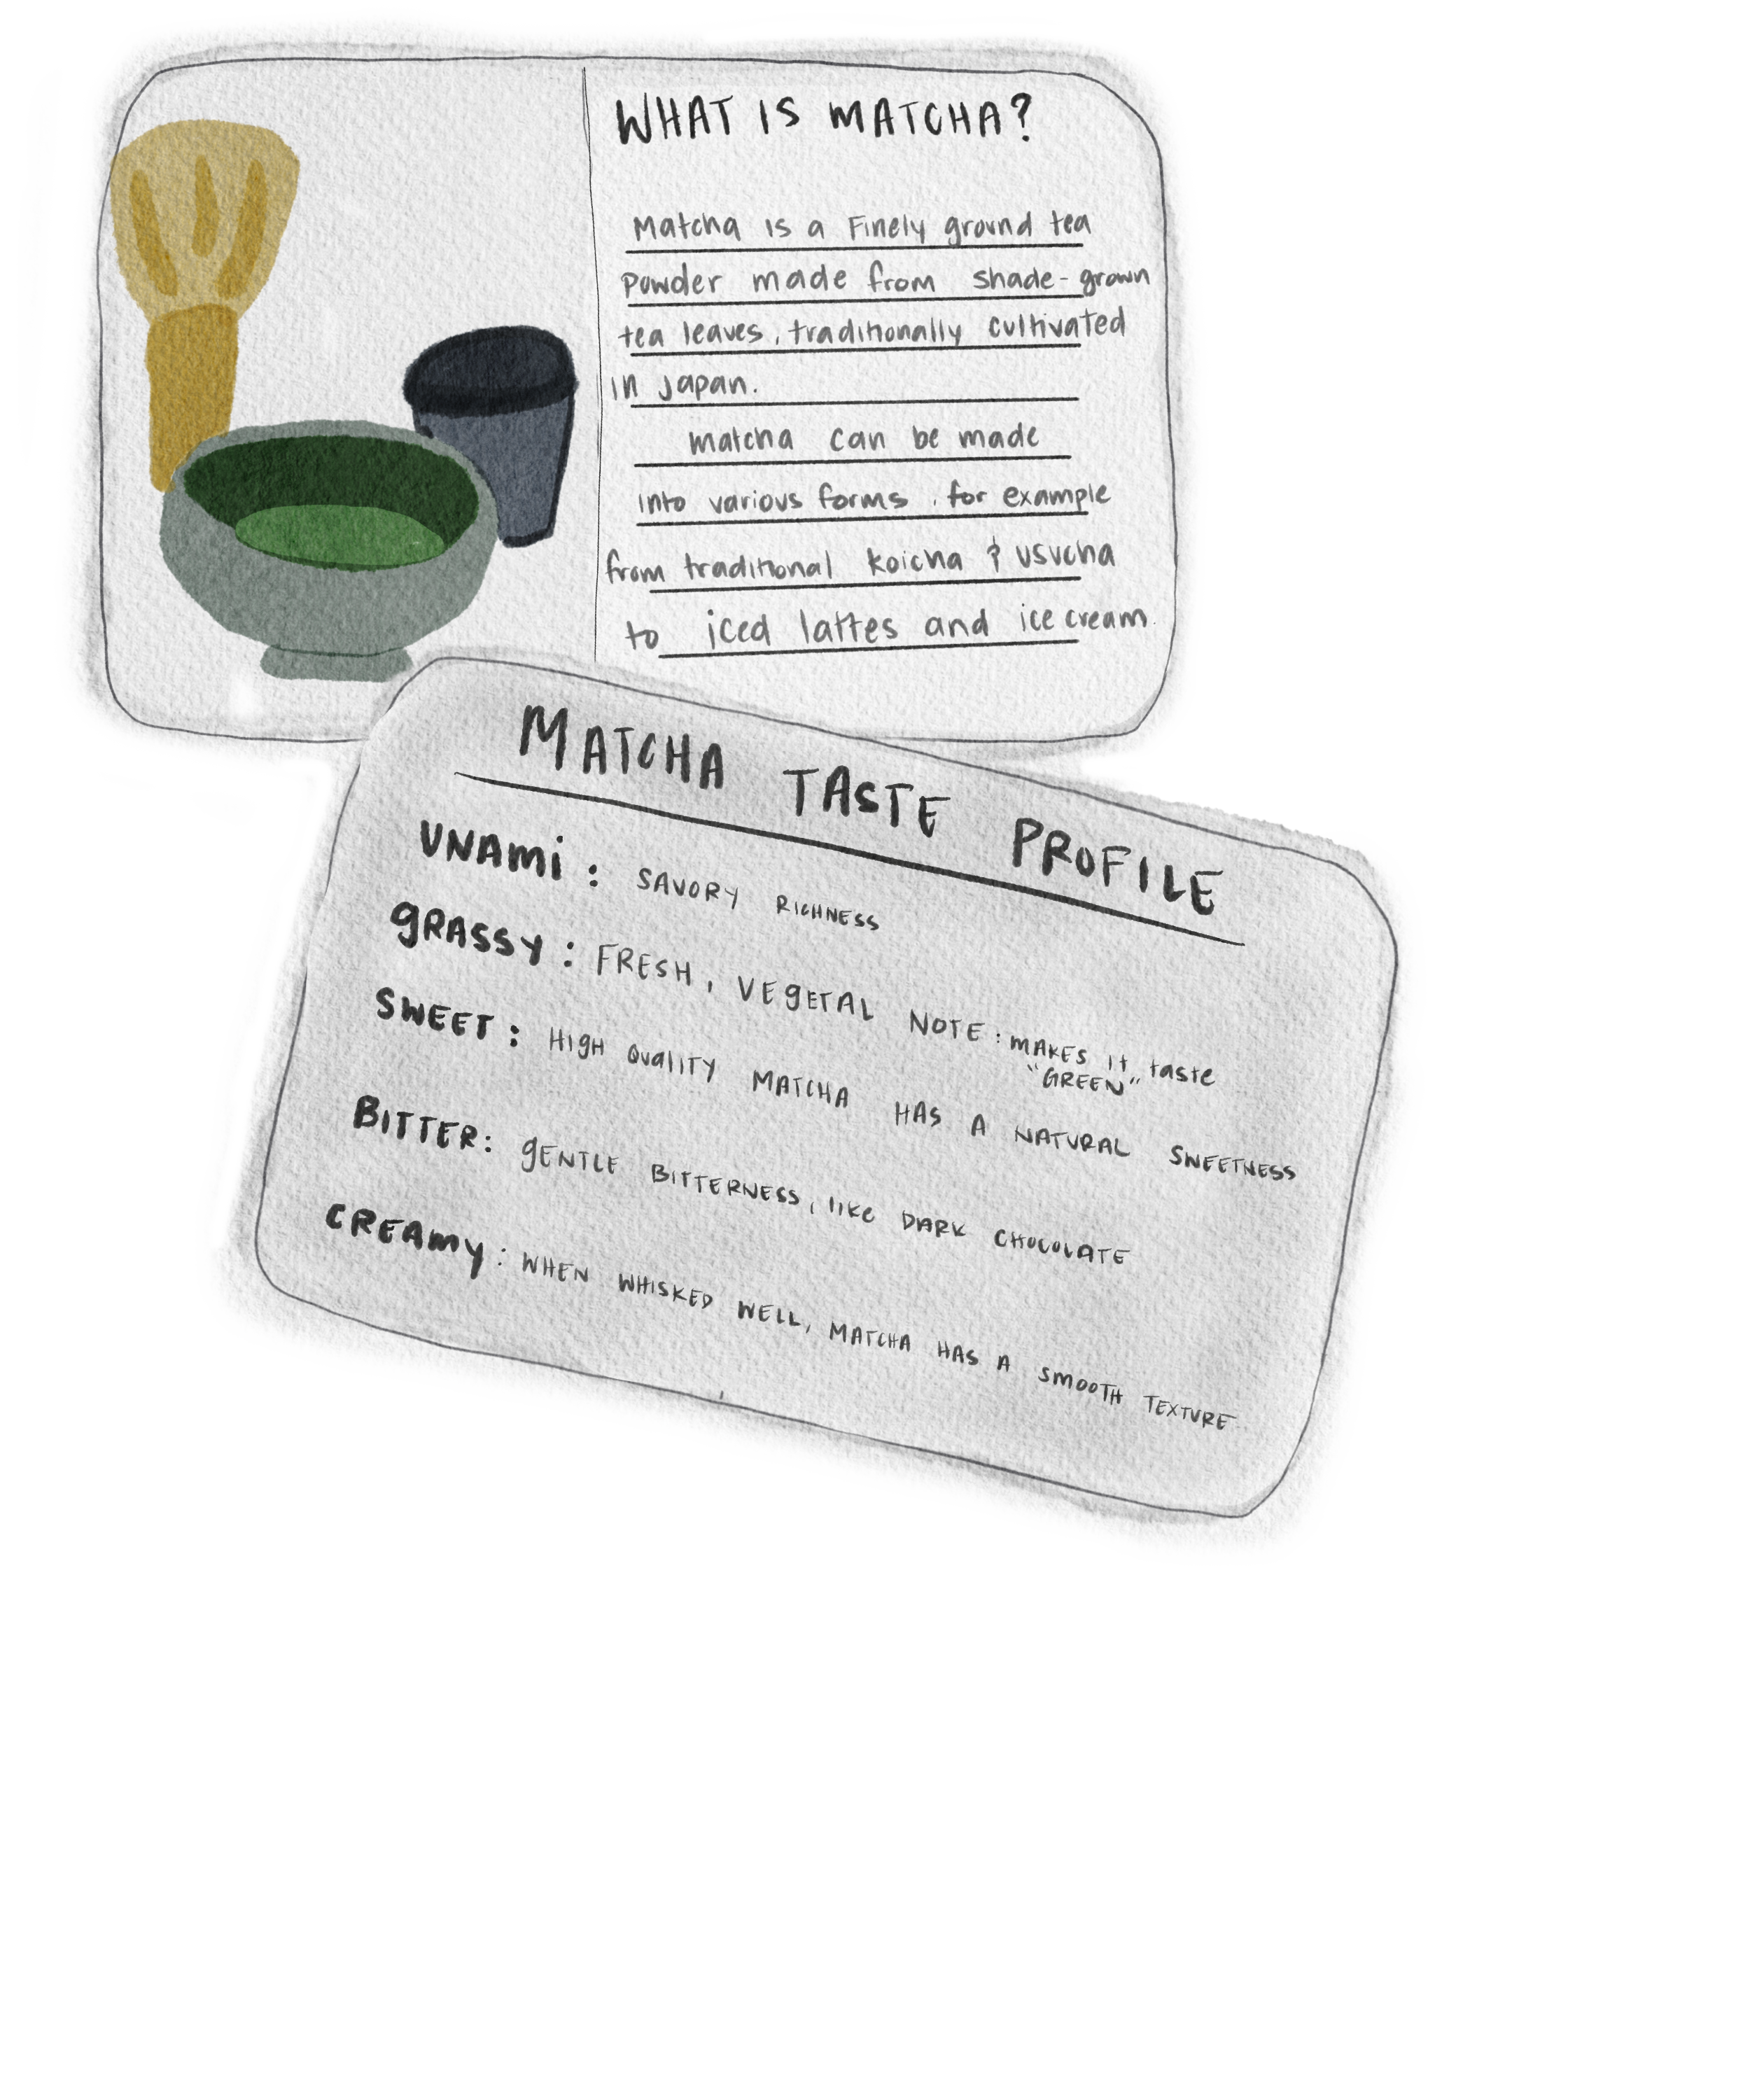 WHAT IS MATCHA?
Matcha is a Finely ground tea
Powder made from shade-grown
tea leaves, traditionally cultivated
in Japan.
matcha can be made
into various forms, for example
from traditional koicha & usucha
to iced lattes and ice cream.
MATCHA TASTE PROFILE
UNAMi: SAVORY RICHNESS
gRASSY: FRESH, VEgETAL NOTE: MAKES it taste
"GREEN"
SWEET: HIgH QUaLITY MATCHA HAS A NATURAL SWEETNESS
BITTER: gENTLE BITTERNESS, like DARK CHOCOLATE
CREAmy: WHEN WHISKED WELL, MATCHA HAS A SMOOTH TEXTURE